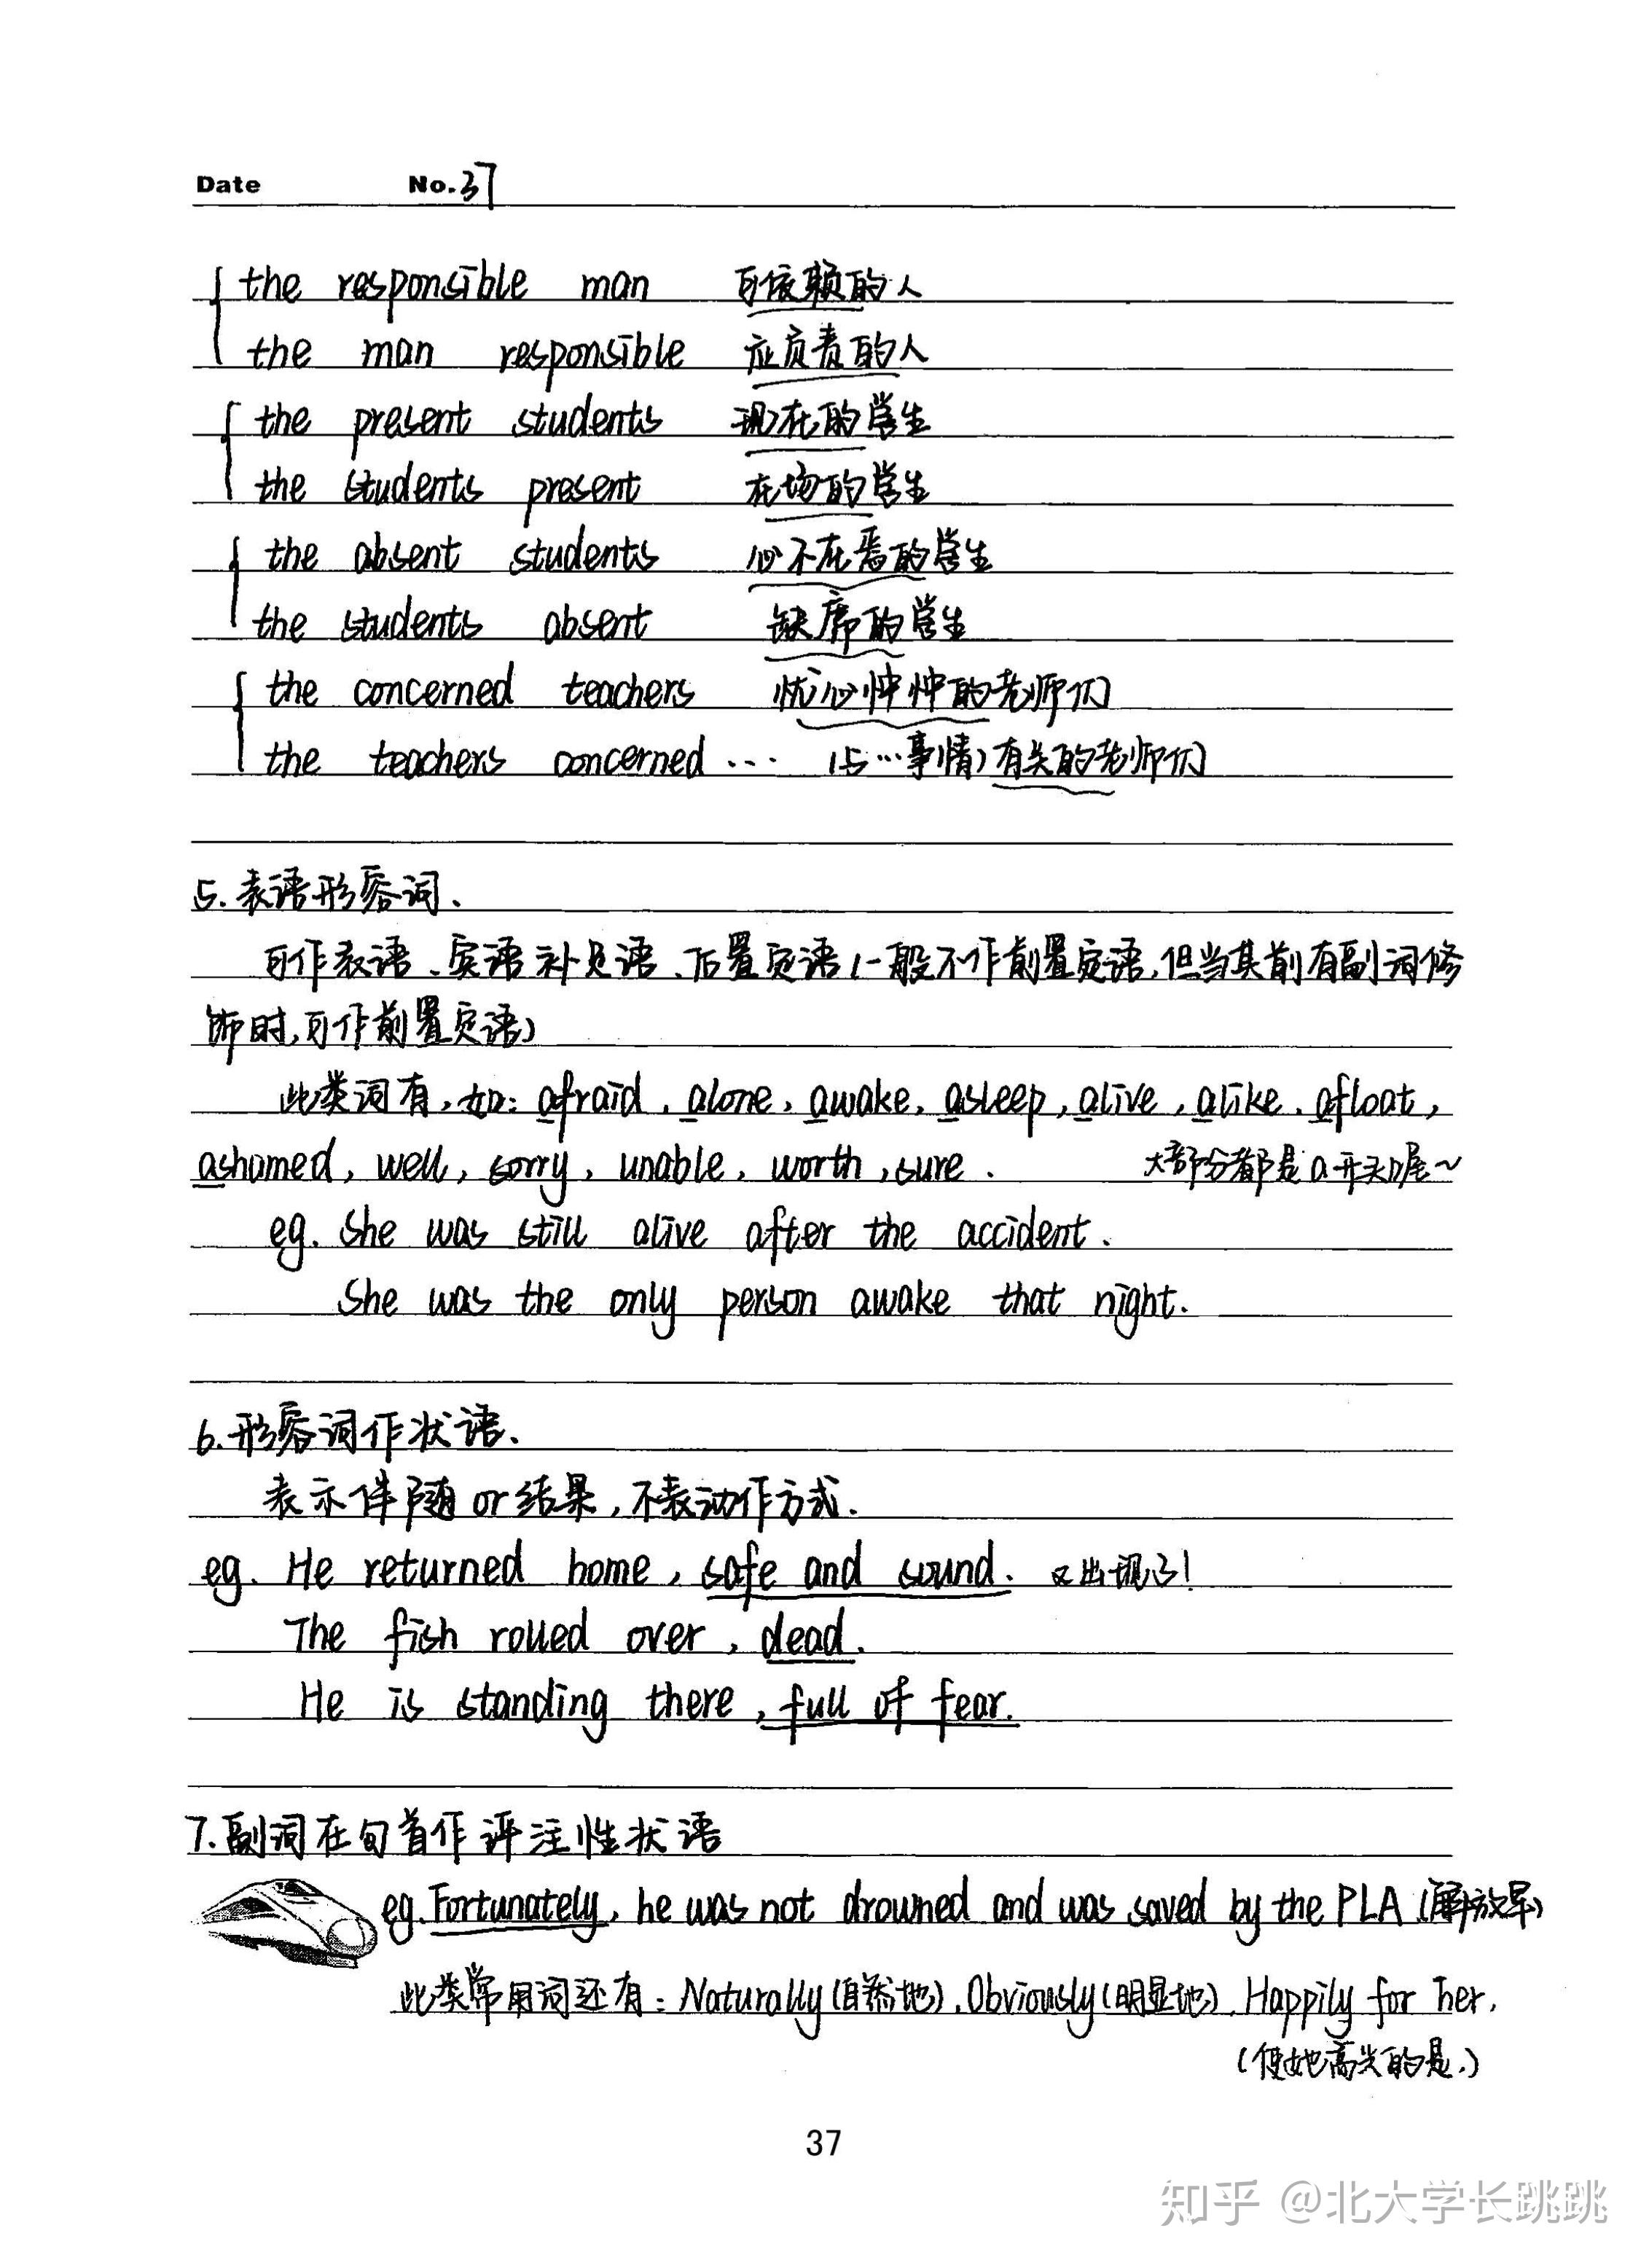 Date No.37
the responsible man 可依赖的人
the man responsible 应负责的人
the present students 现在的学生
the students present 在场的学生
the absent students 心不在焉的学生
the students absent 缺席的学生
the concerned teachers 忧心忡忡的老师们
the teachers concerned … (与…事情)有关的老师们
5.表语形容词.
可作表语、宾语补足语、后置定语(一般不作前置定语,但当其前有副词修
饰时,可作前置定语)
此类词有,如: afraid, alone, awake, asleep, alive, alike, afloat,
ashamed, well, sorry, unable, worth, sure. 大部分都是a开头喔~
eg. She was still alive after the accident.
She was the only person awake that night.
6.形容词作状语.
表示伴随or结果,不表动作方式.
eg. He returned home, safe and sound. 又出现了!
The fish rolled over, dead.
He is standing there, full of fear.
7.副词在句首作评注性状语
eg. Fortunately, he was not drowned and was saved by the PLA (解放军)
此类常用词还有: Naturally(自然地), Obviously(明显地), Happily for her,
(使她高兴的是,)
37
知乎 @北大学长跳跳